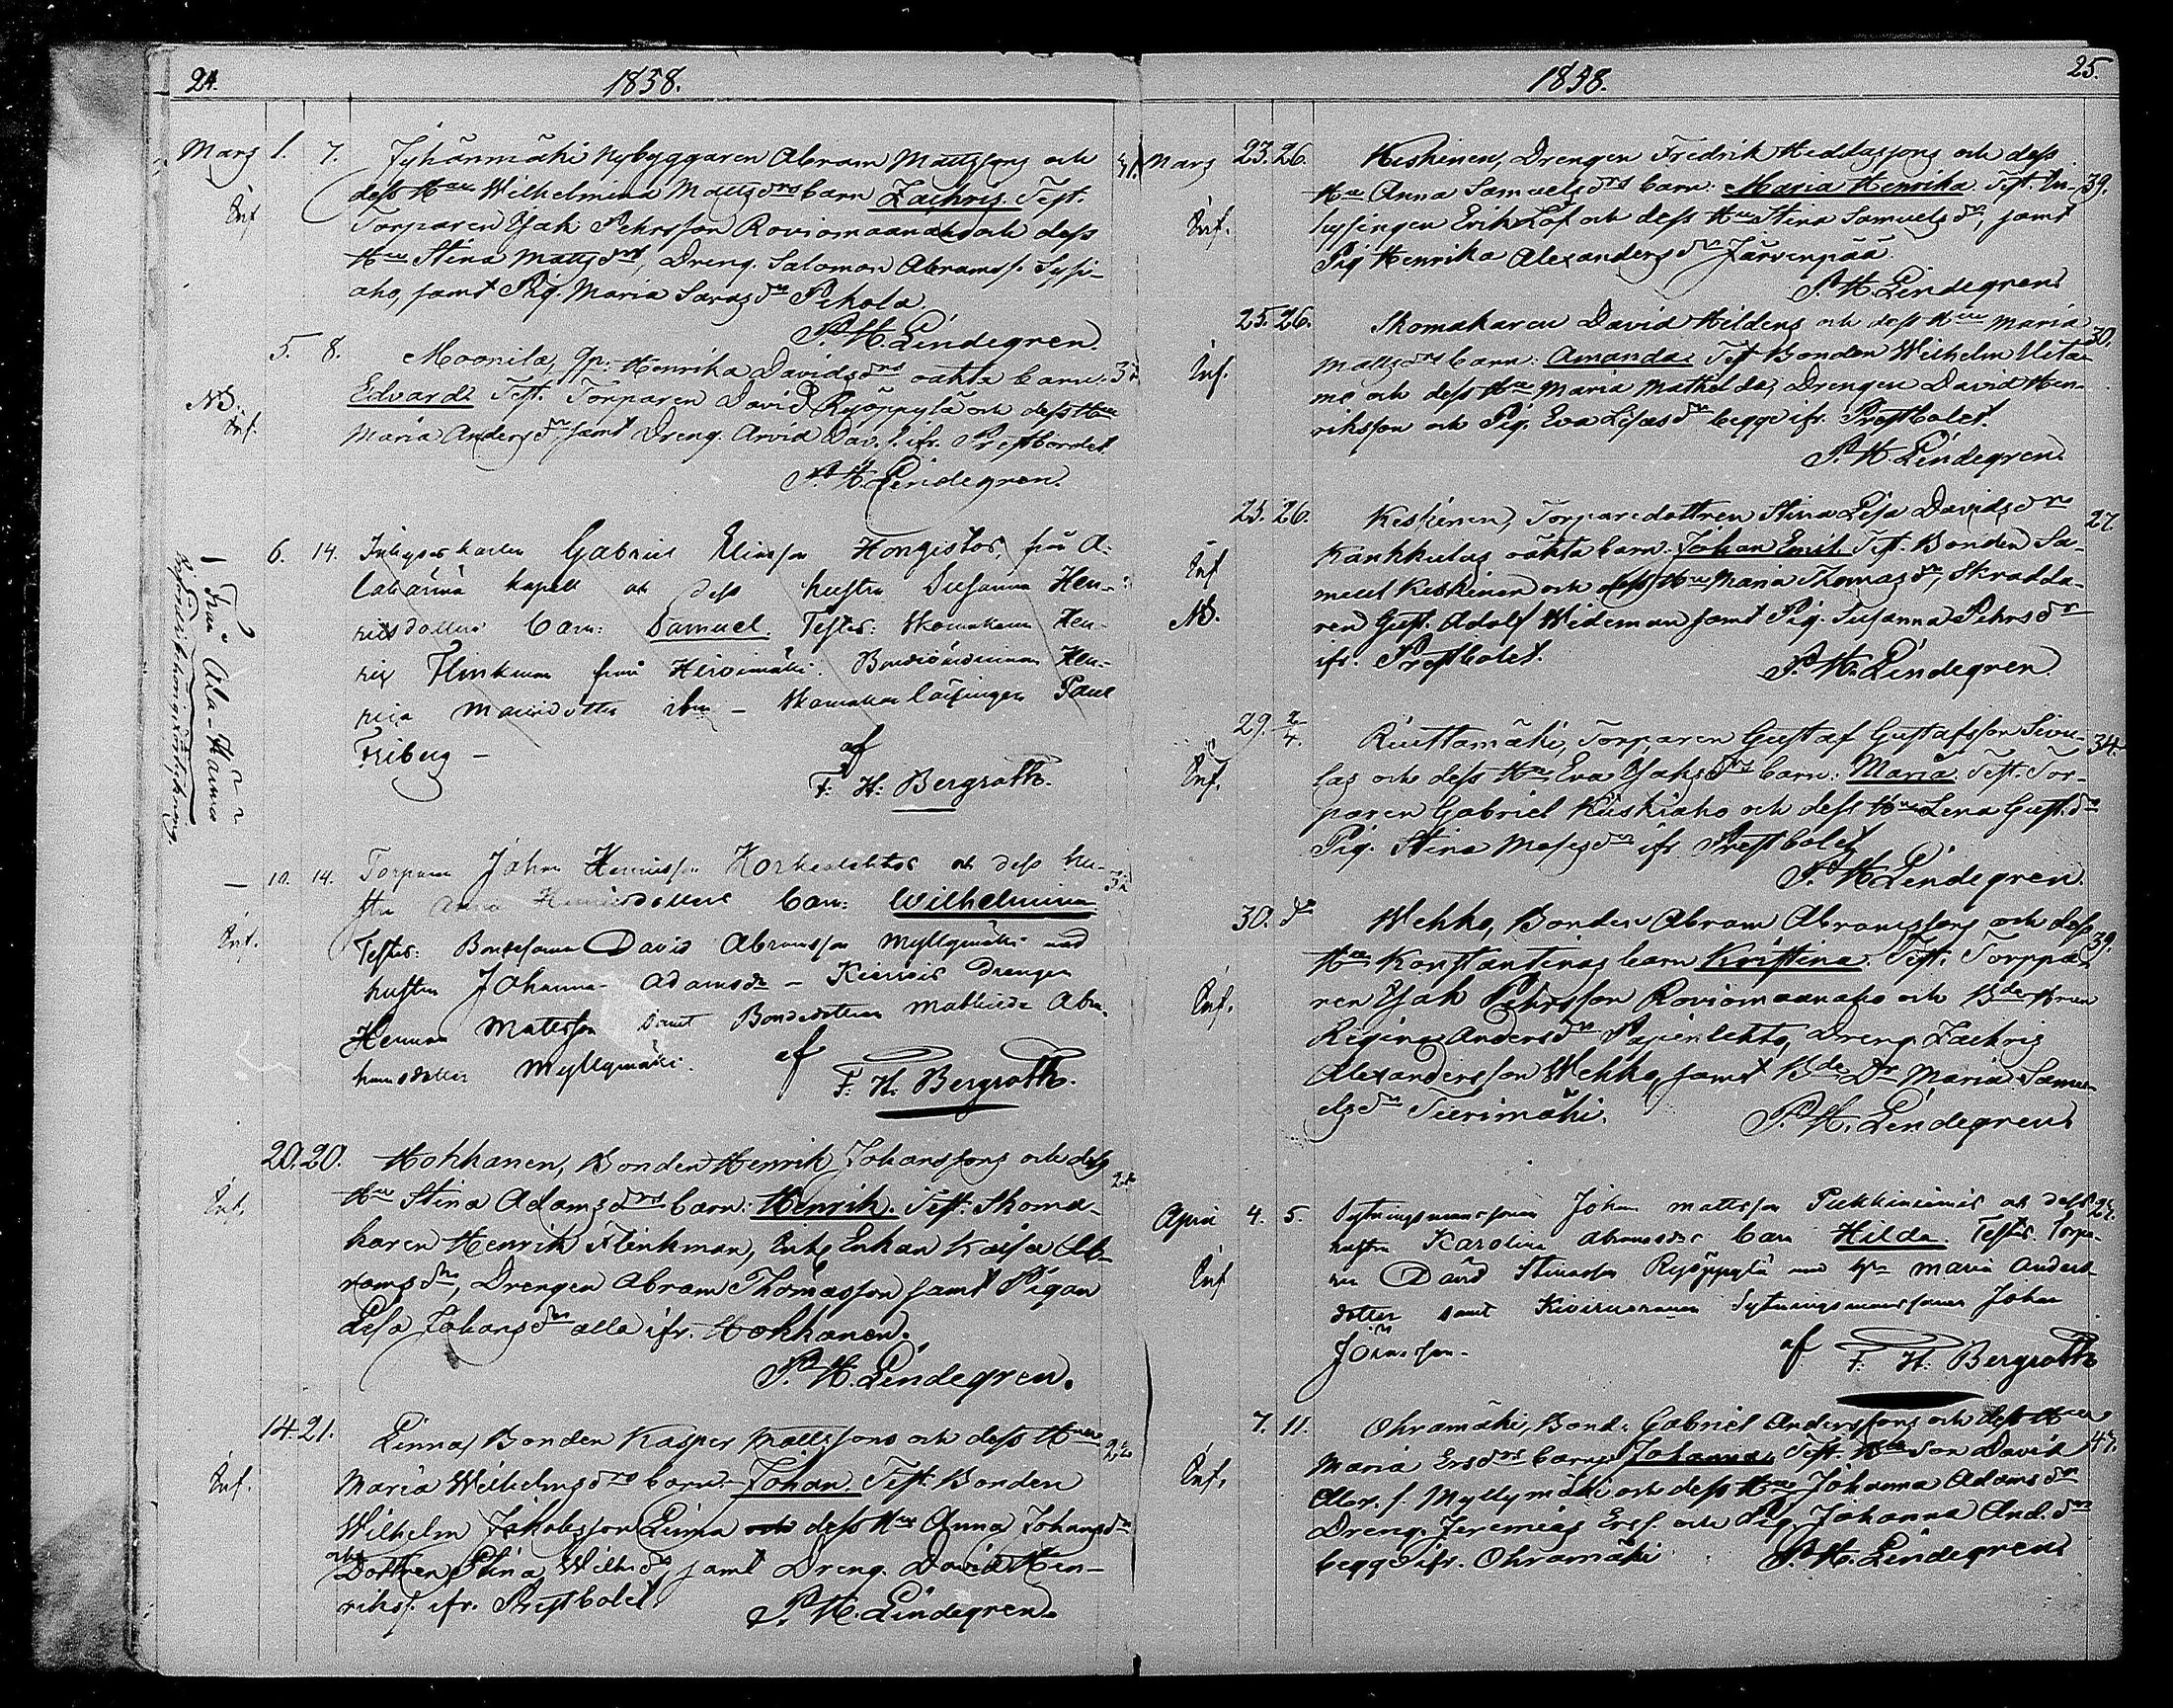 24.
1858.
Mars 1. 7. Jyhänmäki Nybyggaren Abram Mattssons och 31
Inf dess Hu Wilhelmina Mattsdrs barn Zachris. Test.
Torparen Isak Pehrsson Roviomaanaho och dess
Hu Stina Mattsdr, Dreng. Salomon Abramss. Sysi-
aho, samt Pig. Maria Sarasdr Pihola
P. H. Lindegren.
5. 8. Moonila, Qp. Henrika Davidsdrs oäkta barn.
Edvard. Test. Torparen David Ryöppylä och dess Hu
NB. Inf.
Maria Andersdr, samt Dreng. Arvid Dav. s. ifr. Prestbordet
P. H. Lindegren.
6. 14. Inhyseskarlen Gabriel Eliasson Hongistos, från A-
lahärmä kapell och dess hustru Susanna Hen-
riksdotters barn: Samuel. Testes: Skomakaren Hen-
rik Flinkman från Hirvimäki. Hen-
rika dotter ibm – Skomakarlärlingen Paul
Friberg –
af
F. H. Bergroth.
Från Ala-Härmä
10. 14. Torparen Johan Henriksson Korkealehtos och dess hu-
stru Anna Henriksdotters barn: Wilhelmina
Inf. Testes: Bondesonen David Abramsson Myllymäki med
hustru Johanna Adamsdr – Drengen
Herman Mattsson samt Bondedottren Mathilda Abra-
hamsdotter Myllymäki. af
F. H. Bergroth.
20. 20. Hokkanen, Bonden Henrik Johanssons och dess
Inf. Hu Stina Adamsdrs barn: Henrik. Test. Skoma-
karen Henrik Flinkman, Enk. Enkan Kaisa Ab-
ramsdr, Drengen Abram Thomasson samt Pigan
Lisa Johansdr alla ifr. Hokkanen.
P. H. Lindegren.
14. 21. Linna, Bonden Kasper Mattssons och dess Hu
Inf. Maria Wilhelmsdrs barn. Johan. Test. Bonden
Wilhelm Jakobsson Linna och dess Hu Anna Johansdr
och Dottren Stina Wilh.dr, samt Dreng. David Hen-
rikss. ifr. Prestbolet.
P. H. Lindegren.
25.
1858.
Mars 23. 26. Keskinen, Drengen Fredrik Heddassons och dess 39.
Inf. Hu Anna Samuelsdrs barn: Maria Henrika Test. In-
hysingen Erik Löf och dess Hu Stina Samuelsdr, samt
Pig Henrika Alexandersdr Järvenpää.
P. H. Lindegren
25. 26. Skomakaren David Hildens och dess Hu Maria 30.
Inf. Mattsdrs barn: Amanda. Test. Bonden Wilhelm Uita-
mo och dess Hu Maria Mathilda, Drengen David Hen-
riksson och Pig. Eva Lisasdr begge ifr. Prestbolet.
P. H. Lindegren.
25. 26. Keskinen, Torparedottren Stina Lisa Davidsdrs 27.
Inf Kankkulas oäkta barn. Johan Emil. Test. Bonden Sa-
muel Keskinen och dess Hu Maria Thomasdr, Skrädda-
NB. ren Gust. Adolf Wideman samt Pig. Susanna Pehrsdr
ifr. Prestbolet.
P. H. Lindegren
29. 2/4. Riuttamäki, Torparen Gustaf Gustafsson Sivu- 34.
Inf. las och dess Hu Eva Isaksdrs barn: Maria. Test. Tor-
paren Gabriel Kiiskiaho och dess Hu Lena Gust.dr
Pig. Stina Mosesdr ifr Prestbolet
P. H. Lindegren.
30. do Wehko, Bonden Abram Abramssons och dess 39.
Hu Konstantinas barn Kristina. Test. Torppa-
Inf. ren Isak Pehrsson Roviomaanaho och Bde Hrun
Regina Andersdr Papinlehto, Dreng. Zachris
Alexandersson Wehko, samt Bde Dr Maria Samu-
elsdr Tierimäki.
P. H. Lindegren
April 4. 5. Sytningsmanssonen Johan Mattsson Pukkiniemis och dess 27.
hustru Karolina Abramsdrs barn Hilda. Testes. Torpa-
Inf ren David Stinasson Ryöppylä med Hu Maria Anders-
dotter samt Sytningsmanssonen Johan
Jöransson.
af F. H. Bergroth
7. 11. Ohramäki, Bond. Gabriel Anderssons och dess Hu 47.
Inf. Maria Ersdrs barn Johanna. Test. Bde Son David
Abr. s. Myllymäki och dess Hu Johanna Adamsdr
Dreng. Jeremias Erss. och Pig Johanna And.dr
begge ifr. Ohramäki
P. H. Lindegren